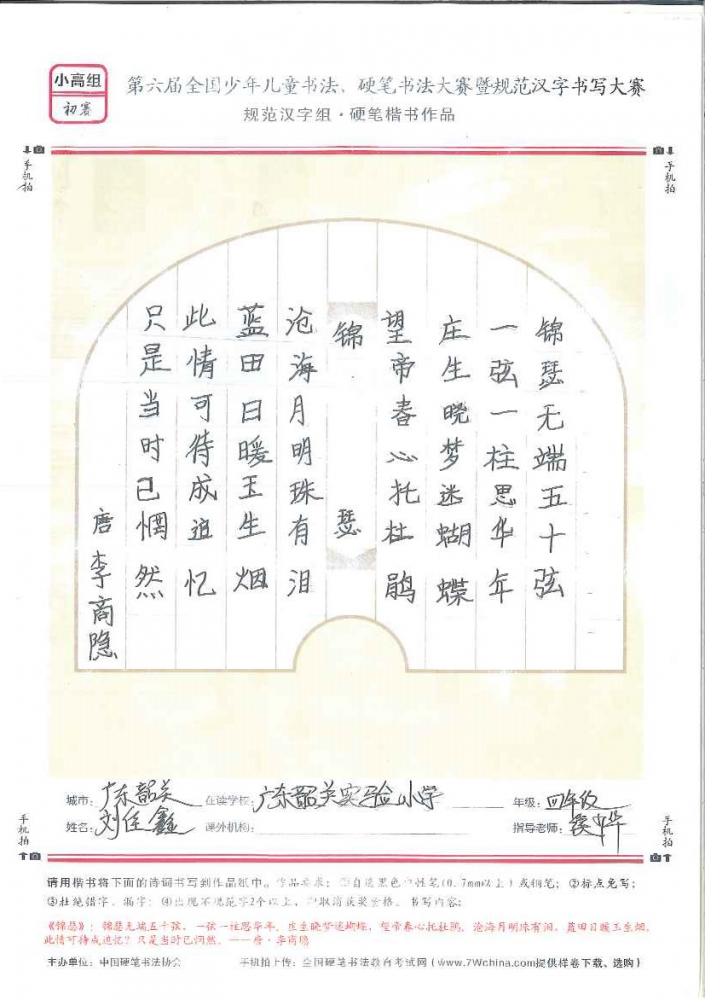 小高组
初赛
第六届全国少年儿童书法、硬笔书法大赛暨规范汉字书写大赛
规范汉字组·硬笔楷书作品
手机拍
手机拍
锦瑟无端五十弦
一弦一柱思华年
庄生晓梦迷蝴蝶
望帝春心托杜鹃
锦瑟
沧海月明珠有泪
蓝田日暖玉生烟
此情可待成追忆
只是当时已惘然
唐李商隐
城市：广东韶关 在读学校：广东韶关实验小学 年级：四年级
姓名：刘佳鑫 课外机构： 指导老师：
手机拍
手机拍
请用楷书将下面的诗词书写到作品纸中。作品要求：①自选黑色中性笔(0.7mm以上)或钢笔；②标点免写；
③杜绝错字、漏字；④出现不规范字2个以上，即取消获奖资格。书写内容：
《锦瑟》：锦瑟无端五十弦，一弦一柱思华年。庄生晓梦迷蝴蝶，望帝春心托杜鹃。沧海月明珠有泪，蓝田日暖玉生烟。
此情可待成追忆？只是当时已惘然。——唐·李商隐
主办单位：中国硬笔书法协会 手机拍上传：全国硬笔书法教育考试网（www.7Wchina.com提供样卷下载、选购）